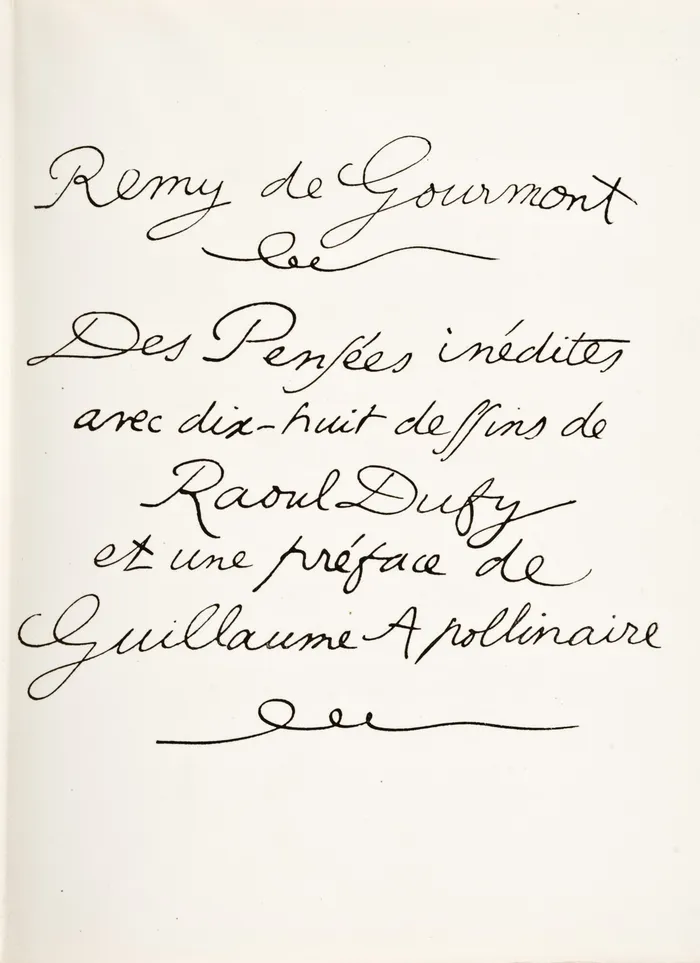 Remy de Gourmont
Des Penſées inédites
avec dix-huit deſſins de
Raoul Dufy
et une préface de
Guillaume Apollinaire